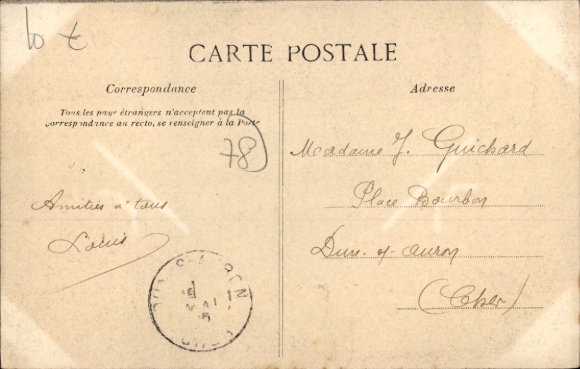 CARTE POSTALE
Correspondance
Tous les pays étrangers n'acceptent pas la
correspondance au recto, se renseigner à la Poste
78
Amitiés à tous
Louis
Adresse
Madame J. Guichard
Place Bourbon
Dun-s-auron
(Cher)
MAI